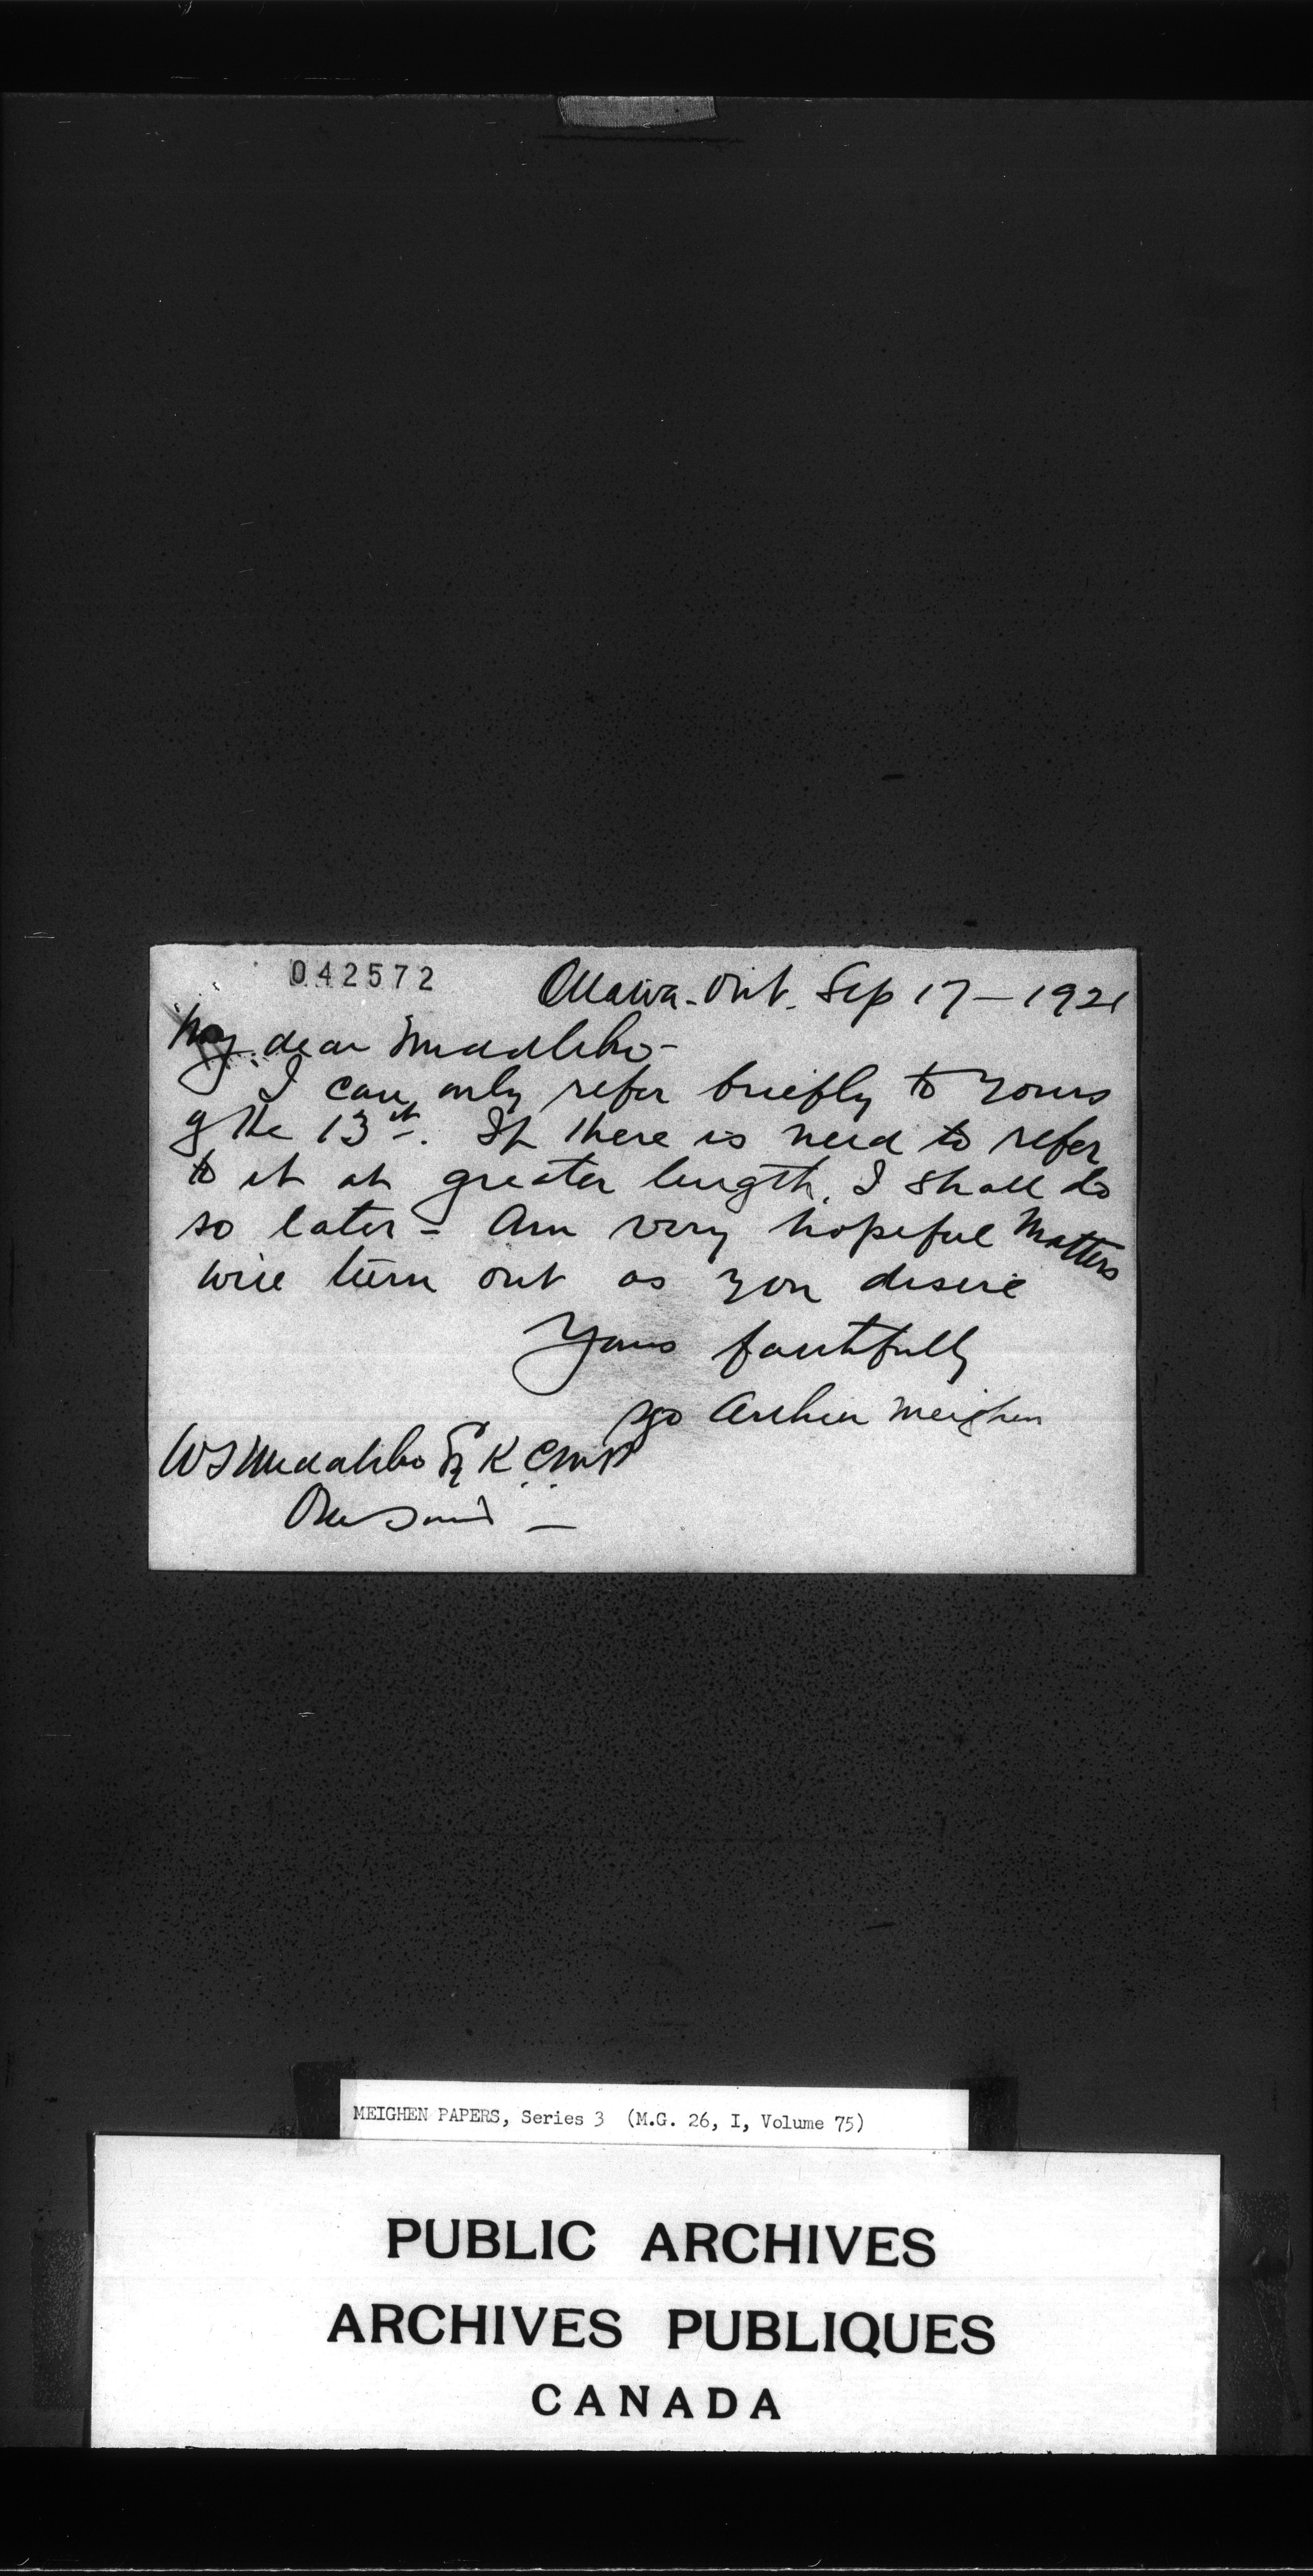 042572
Ottawa - Ont. Sep 17 - 1921
My dear Middlebro -
I can only refer briefly to yours
of the 13th. If there is need to refer
to it at greater length, I shall do
so later - Am very hopeful matters
will turn out as you desire
Yours faithfully
sgd Arthur Meighen
W S Middlebro Esq K C MP
Owen Sound -
MEIGHEN PAPERS, Series 3 (M.G. 26, I, Volume 75)
PUBLIC ARCHIVES
ARCHIVES PUBLIQUES
CANADA